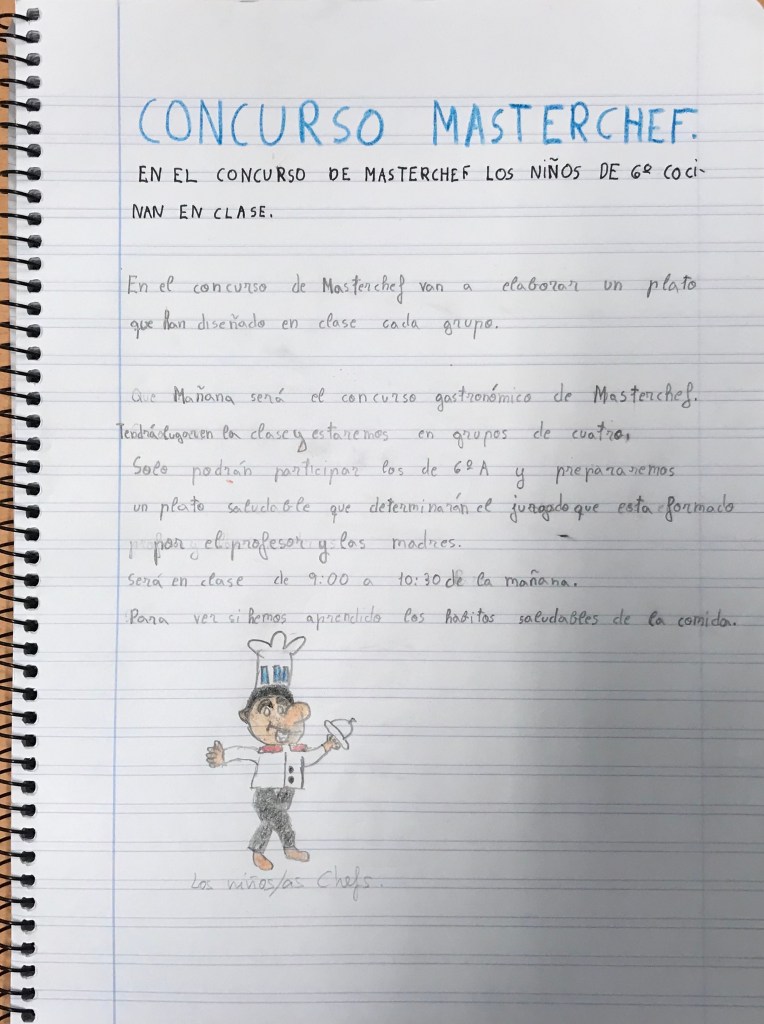 CONCURSO MASTERCHEF.
EN EL CONCURSO DE MASTERCHEF LOS NIÑOS DE 6º COCI-
NAN EN CLASE.
En el concurso de Masterchef van a elaborar un plato
que han diseñado en clase cada grupo.
Mañana será el concurso gastronómico de Masterchef.
Tendrá lugar en la clase y estaremos en grupos de cuatro,
Solo podrán participar los de 6º A y prepararemos
un plato saludable que determinarán el jurgado que esta formado
por el profesor y las madres.
Será en clase de 9:00 a 10:30 de la mañana.
Para ver si hemos aprendido los habitos saludables de la comida.
Los niños/as Chefs.